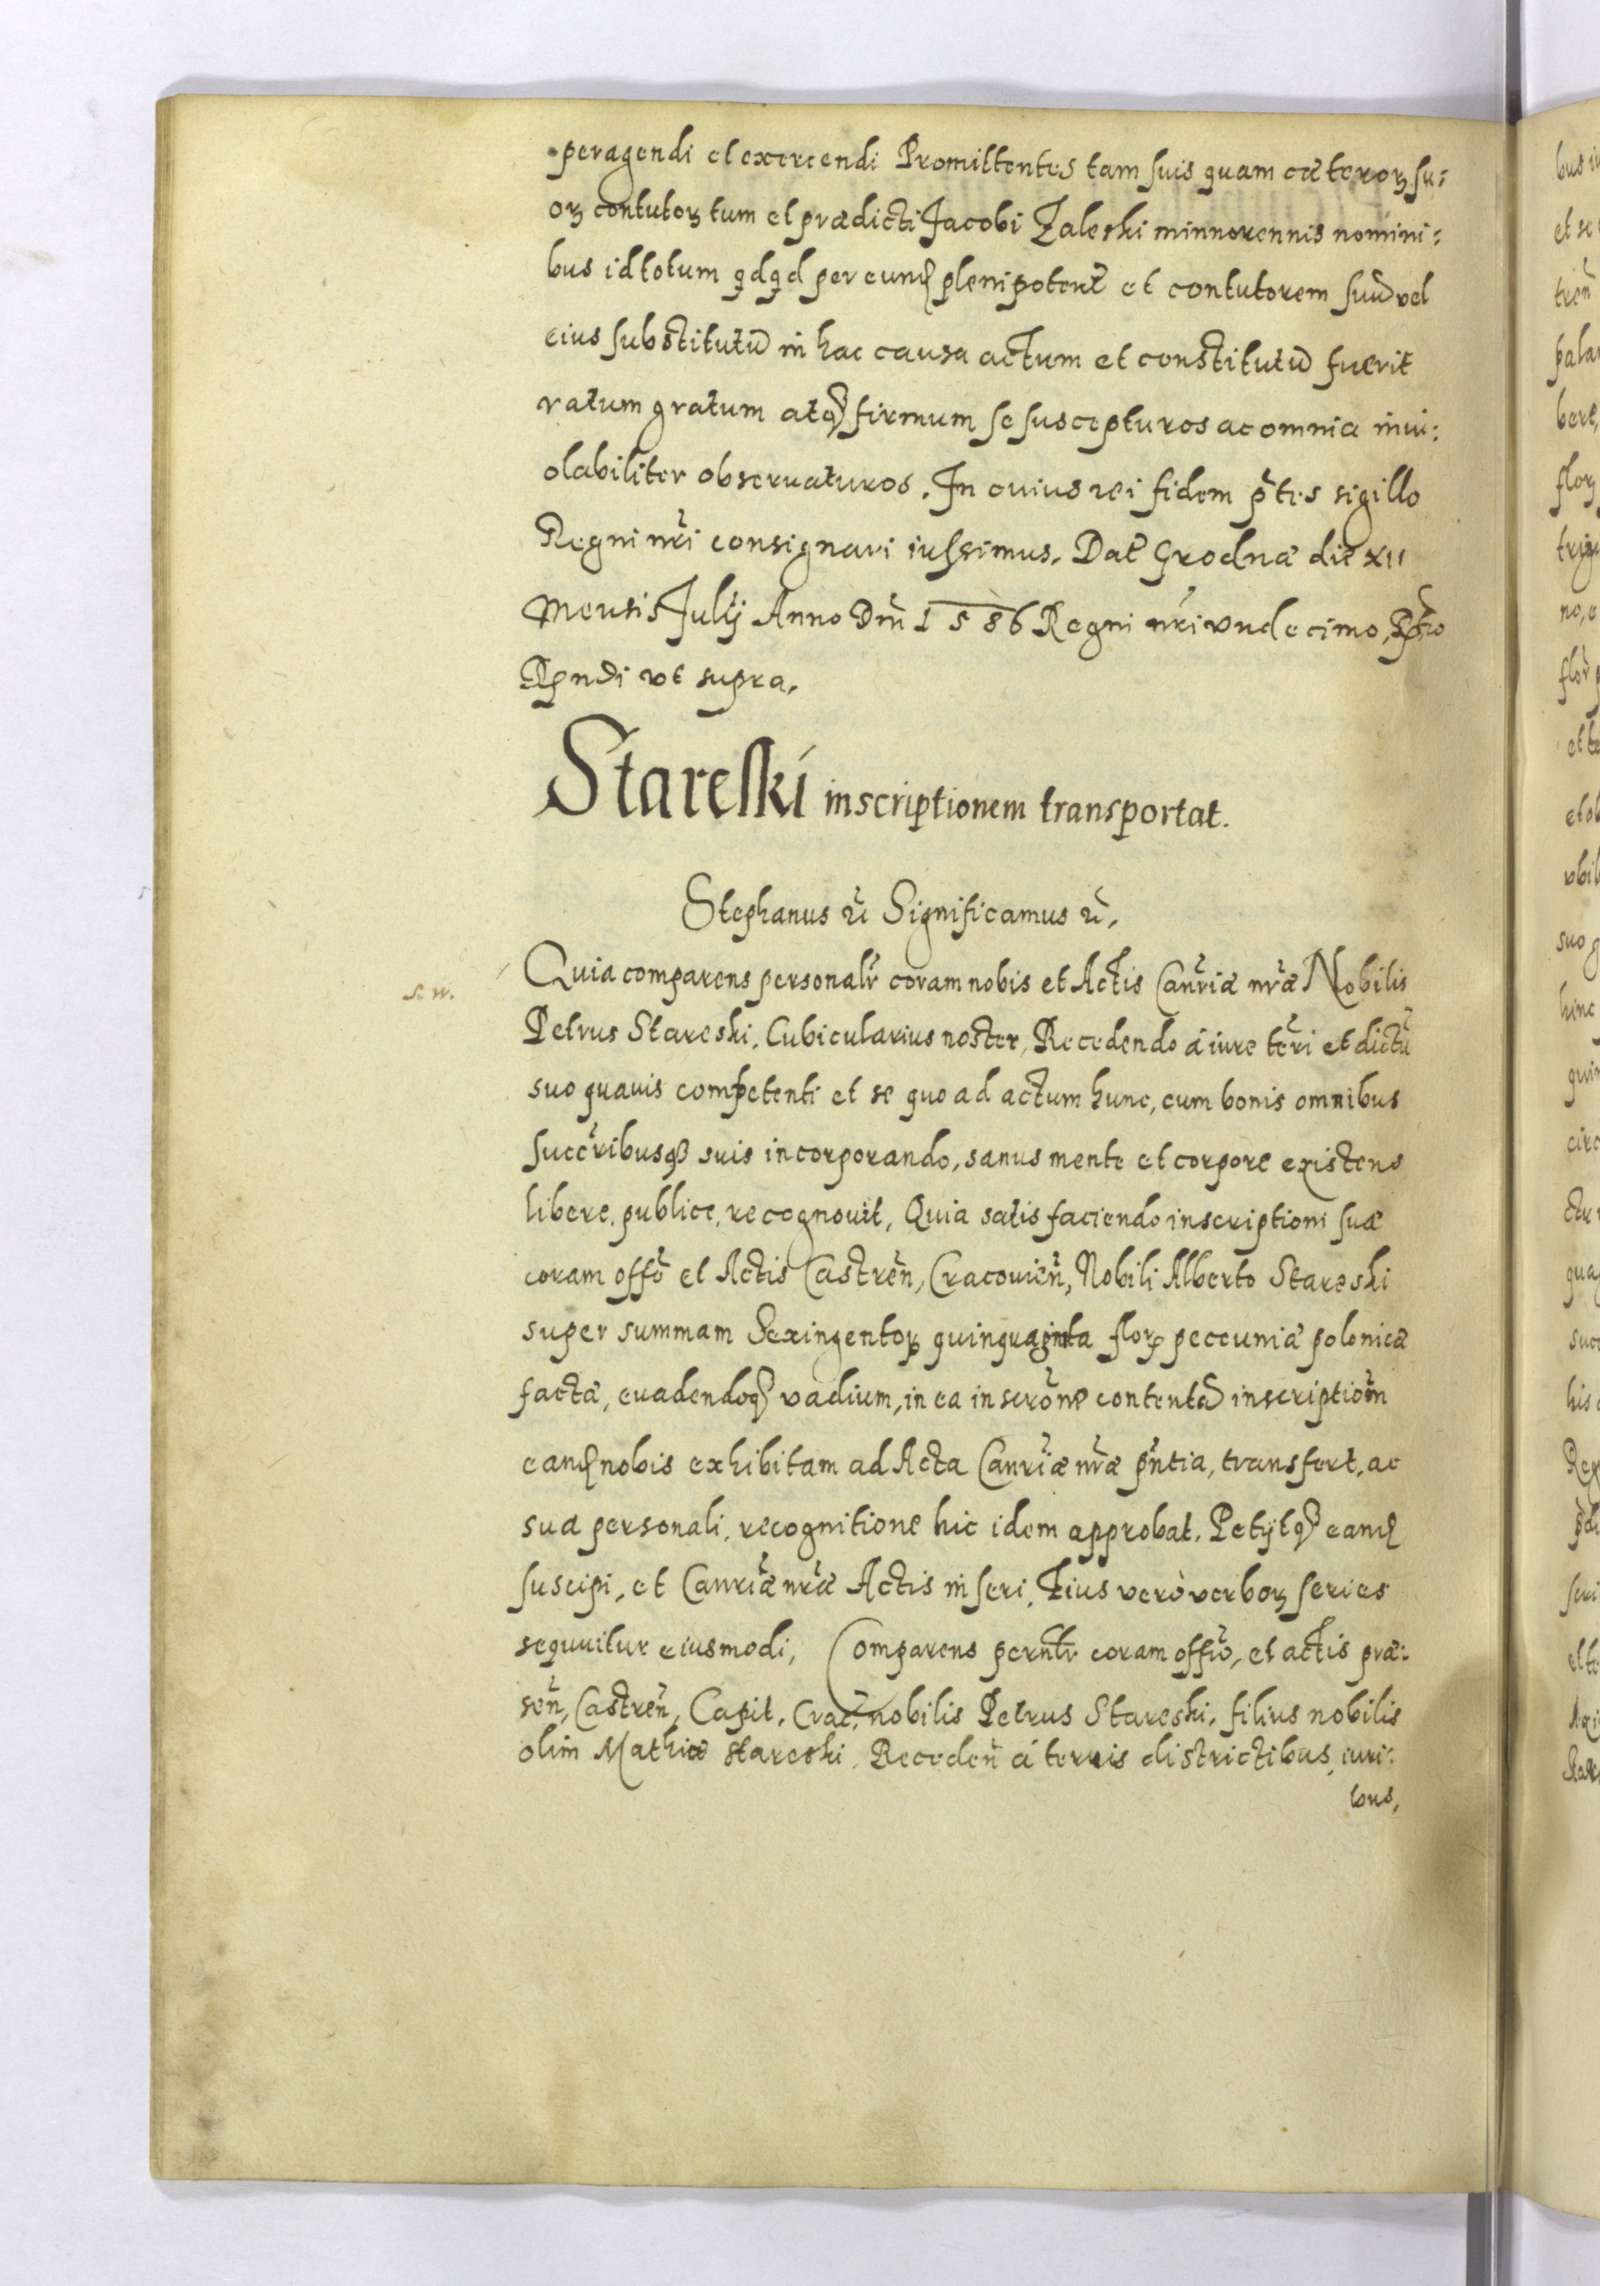 peragendi et exercendi Promittentes tam suis quam cæteroꝝ su:
oꝝ contutoꝝ tum et prædicti Jacobi Zaleski minnorennis nomini:
bus id totum qdqd per eund plenipotent̃ et contutorem suũ vel
eius substitutũ in hac causa actum et constitutũ fuerit
ratum gratum atqꝫ firmum se suscepturos ac omnia inui:
olabiliter obseruaturos. In cuius rei fidem p̃tes sigillo
Regni nr̃i consignari iussimus. Dat̃ Grodnæ die XII
Mensis Julij Anno Dnĩ 1586 Regni nr̃i vndecimo,
Rṇdi vt supra.
Stareski inscriptionem transportat.
Stephanus ꝛc̃ Significamus ꝛc̃.
Quia comparens personalr̃ coram nobis et Actis Canr̃iæ nr̃æ Nobilis
Petrus Stareski, Cubicularius noster, Recedendo á iure ter̃ri et dictũ
suo quauis competenti et se quo ad actum hunc, cum bonis omnibus
succr̃ibusqꝫ suis incorporando, sanus mente et corpore existens
libere, publice, recognouit, Quia satis faciendo inscriptioni suæ
coram offõ et Actis Castreñ, Cracouieñ, Nobili Alberto Stareski
super summam Sexingentoꝝ quinquaginta floꝝ peccuniæ polonicæ
factæ, euadendoqꝫ vadium, in ea inscrõne contentũ inscriptiom̃
eand nobis exhibitam ad Acta Canr̃iæ nr̃æ p̃ntia, transfert, ac
sua personali, recognitione hic idem approbat. Petijtqꝫ eand
suscipi, et Canr̃iæ nr̃æ Actis inseri, Eius verò verboꝝ series
sequuitur eiusmodi, Comparens pernlr̃ coram offiõ, et actis præ:
señ, Castreñ, Capit, Crac̃, nobilis Petrus Stareski, filius nobilis
olim Mathiæ Stareski, Recedeñ á terris districtibus, iuri:
bus,